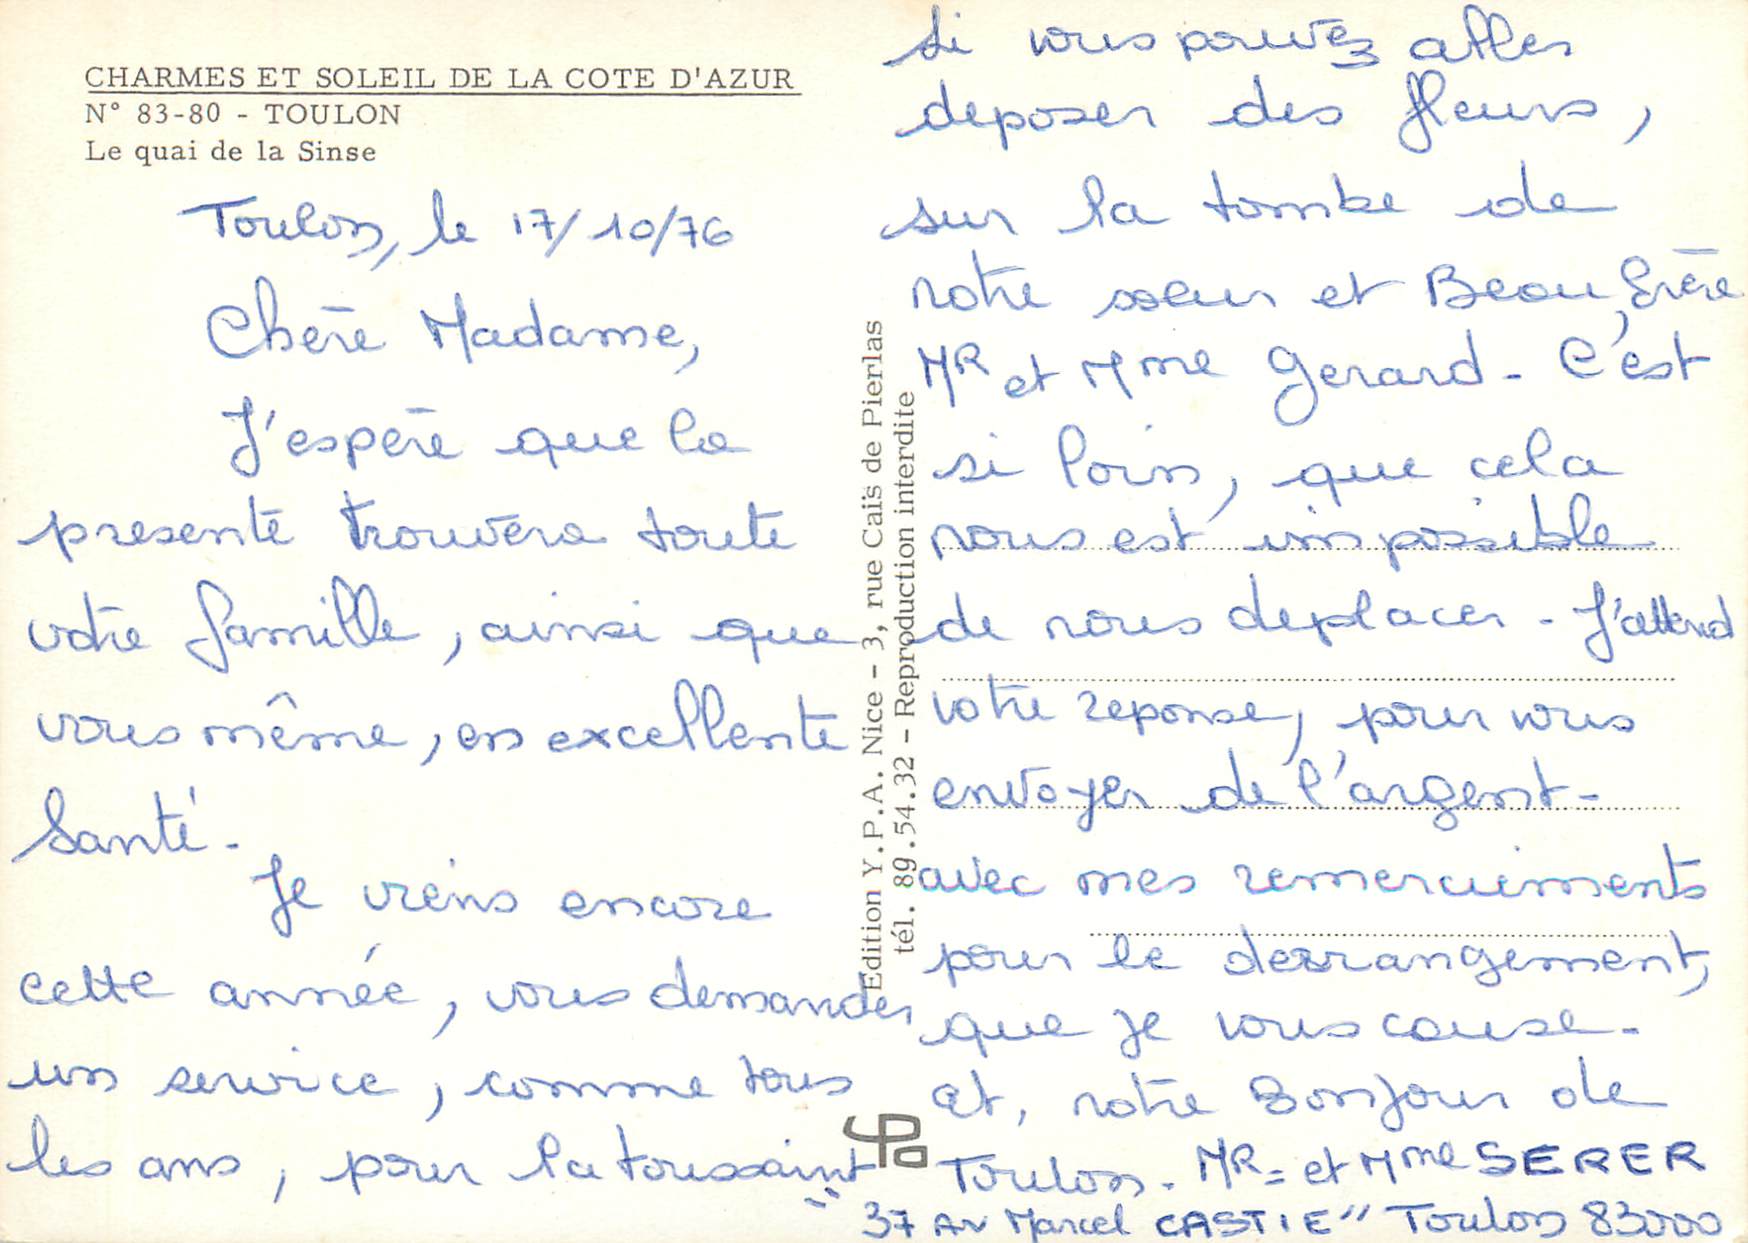 CHARMES ET SOLEIL DE LA COTE D'AZUR
N° 83-80 - TOULON
Le quai de la Sinse
Toulon, le 17/10/76
Chère Madame,
J'espère que la
presente trouvera toute
votre famille, ainsi que
vous même, en excellente
Santé.
Je viens encore
cette année, vous demander
un service, comme tous
les ans, pour la toussaint
si vous pouvez aller
deposer des fleurs,
sur la tombe de
notre sœur et Beau, frère
MR et Mme Gerard - C'est
si loin, que cela
nous est impossible
de nous deplacer - J'attend
votre reponse, pour vous
envoyer de l'argent -
avec mes remerciements
pour le derrangement,
que je vous cause -
et, notre Bonjour de
Toulon. MR = et Mme SERER
" 37 AV Marcel CASTIE" Toulon 83000
Edition Y.P.A. Nice - 3, rue Caïs de Pierlas
tél. 89.54.32 - Reproduction interdite